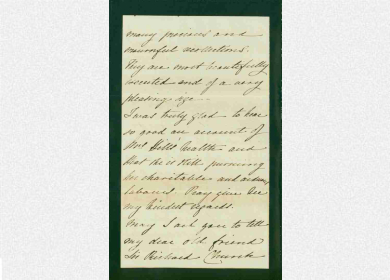 many precious and
mournful recollections.
They are most beautifully
executed and of a very
pleasing size —
I was truly glad to hear
so good an account of
Mrs Hill's health — and
that she is still pursuing
her charitable and arduous
labours. Pray give her
my kindest regards.
May I ask you to tell
my dear old friend
Sir Richard Church